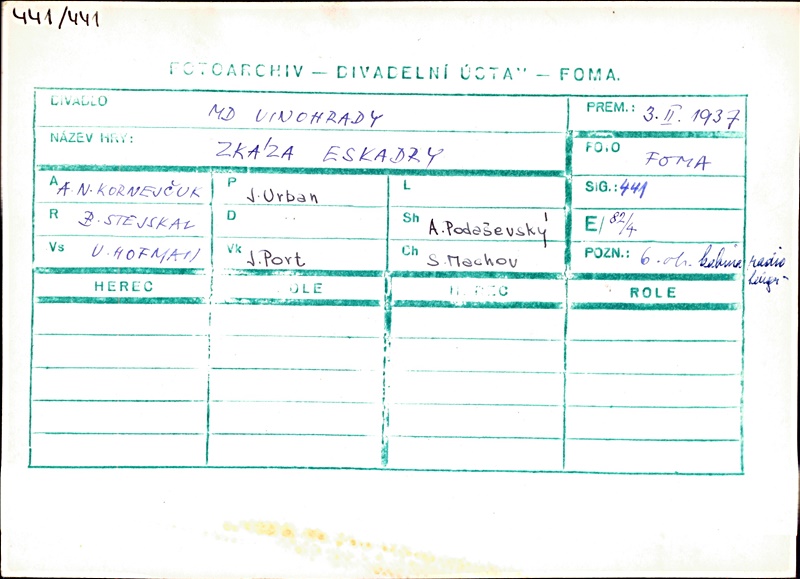 441/441
FOTOARCHIV — DIVADELNÍ ÚSTAV — FOMA.
DIVADLO MD VINOHRADY
PREM.: 3. II. 1937
NÁZEV HRY: ZKÁZA ESKADRY
FOTO FOMA
A A. N. KORNEJČUK
P J. Urban
L
SIG.: 441
R B. STEJSKAL
D
Sh A. Podaševský
E/ 82/4
Vs V. HOFMAN
Vk J. Port
Ch S. Machov
POZN.: 6. ob. kabina radio
HEREC ROLE HEREC ROLE